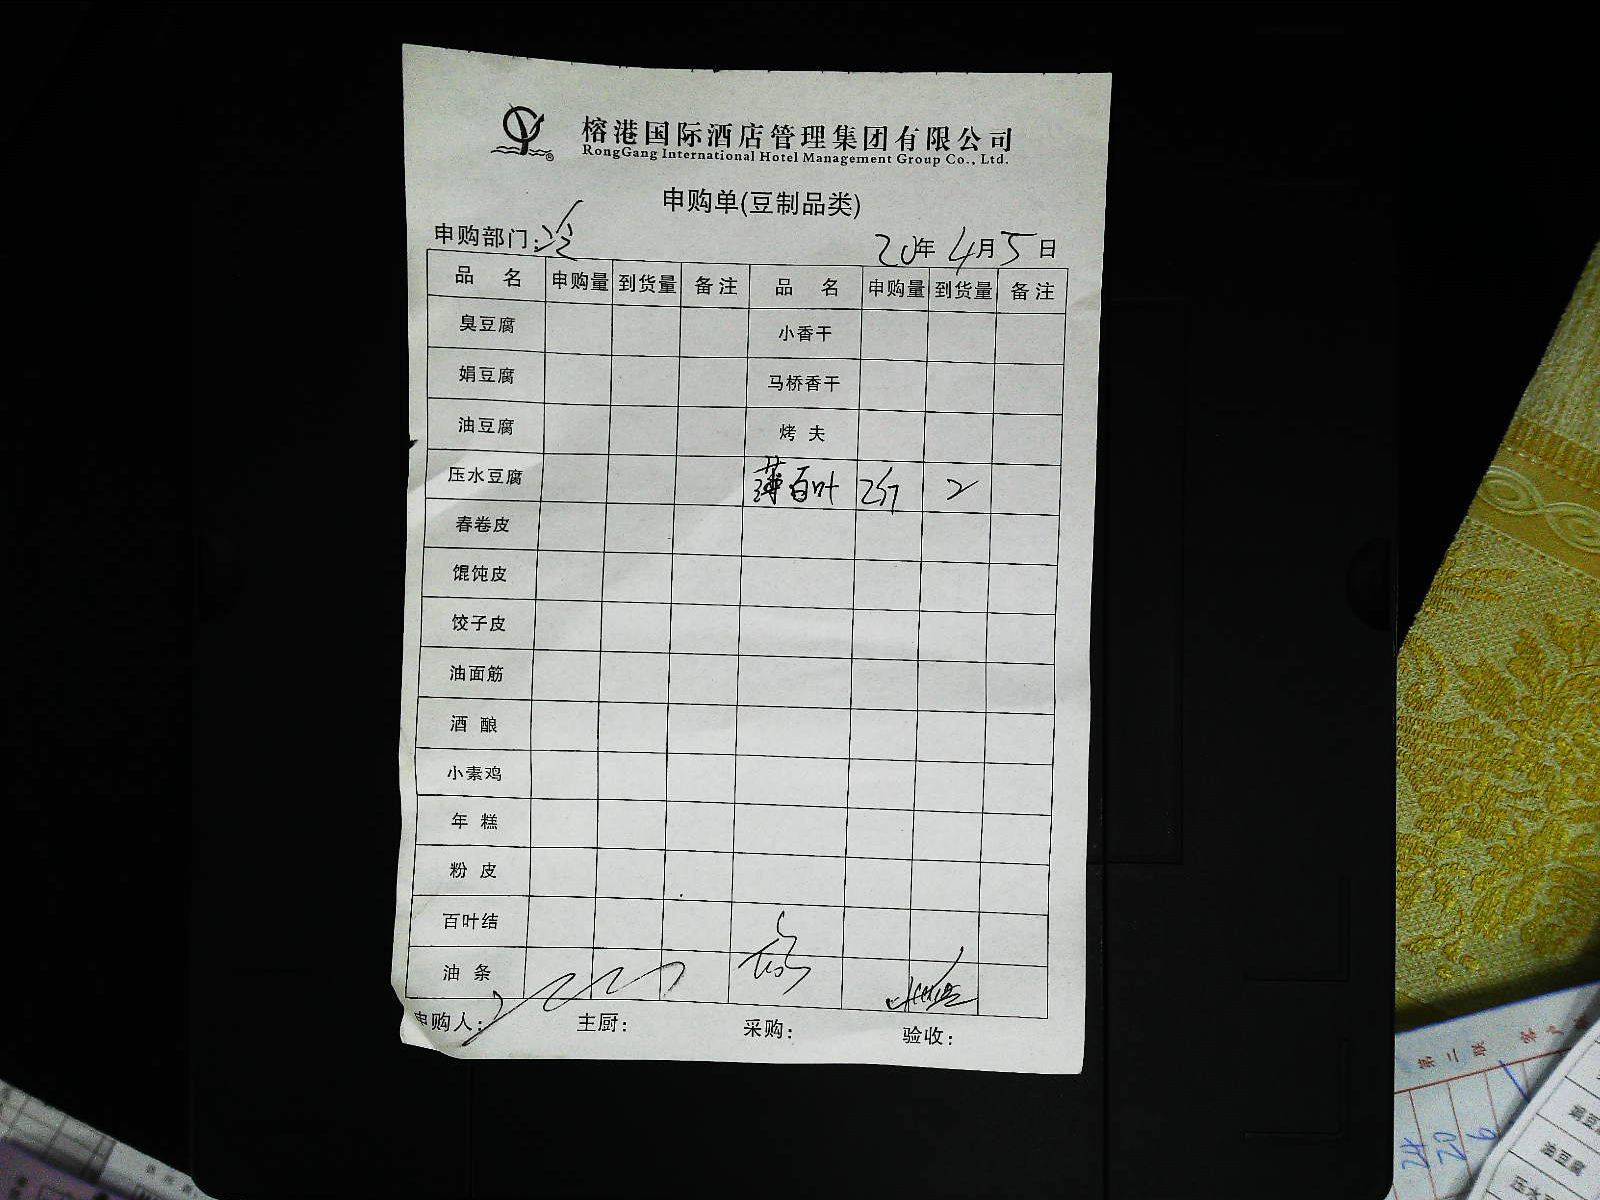 榕港国际酒店管理集团有限公司
RongGang International Hotel Management Group Co., Ltd.
申购单(豆制品类)
申购部门:冷 20年4月5日
品 名 申购量 到货量 备注 品 名 申购量 到货量 备注
臭豆腐 小香干
娟豆腐 马桥香干
油豆腐 烤 夫
压水豆腐 薄百叶 2斤 2
春卷皮
馄饨皮
饺子皮
油面筋
酒 酿
小素鸡
年 糕
粉 皮
百叶结
油 条
申购人: 主厨: 采购: 验收:
第二联
20
油豆腐